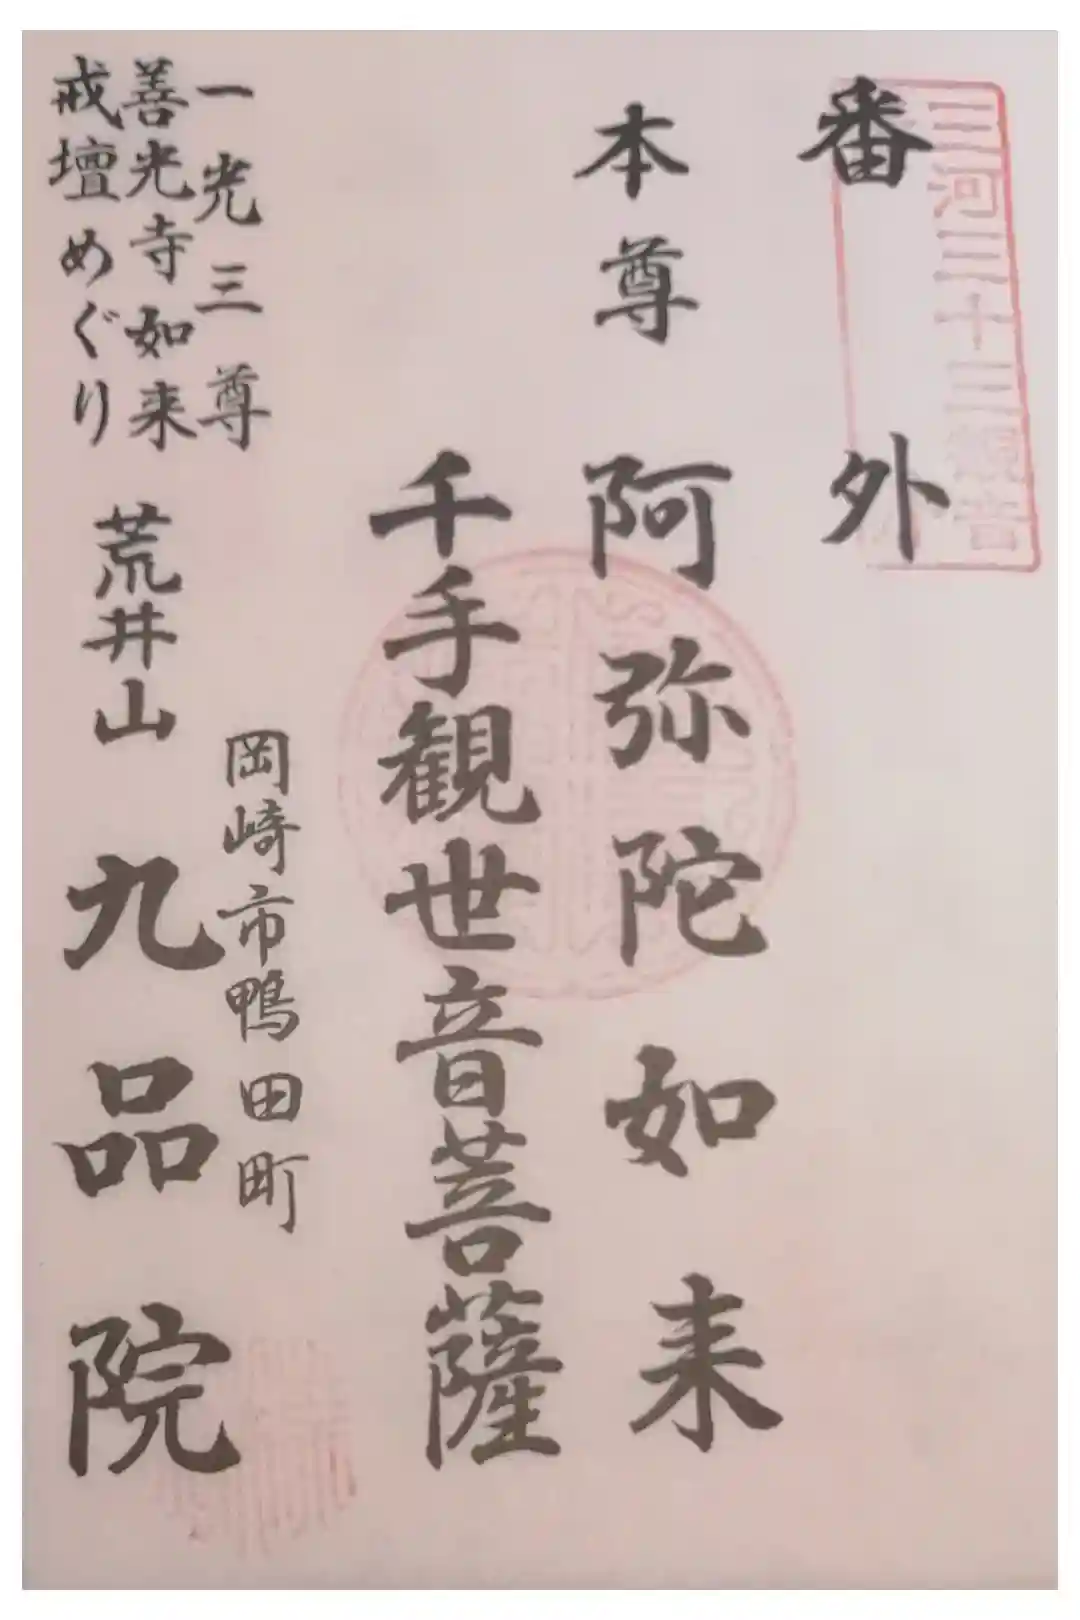 三河三十三観音
番外
本尊 阿弥陀如来
千手観世音菩薩
一光三尊
善光寺如来
戒壇めぐり
岡崎市鴨田町
荒井山 九品院